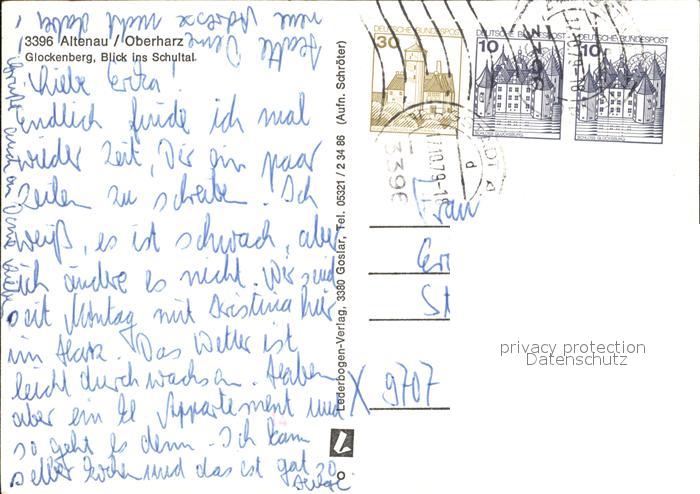 3396 Altenau / Oberharz
Glockenberg, Blick ins Schultal
Liebe Erika!
endlich finde ich mal
wieder Zeit, Dir ein paar
Zeilen zu schreiben. Ich
weiß, es ist schwach, aber
ich ändere es nicht. Wir sind
seit Montag mit Kristina hier
im Harz. Das Wetter ist
leicht durchwachsen. Haben
aber ein kl Appartement und
so geht es denn. Ich kann
selber kochen und das ist gut
hatte Deine
neue Adresse nicht dabei!
Lederbogen-Verlag, 3380 Goslar, Tel. 05321 / 2 34 86 (Aufn. Schröter)
DEUTSCHE BUNDESPOST
30
DEUTSCHE BUNDESPOST
10
SCHLOSS GLÜCKSBURG
DEUTSCHE BUNDESPOST
10
SCHLOSS GLÜCKSBURG
3396
Frau
St
9707
privacy protection
Datenschutz